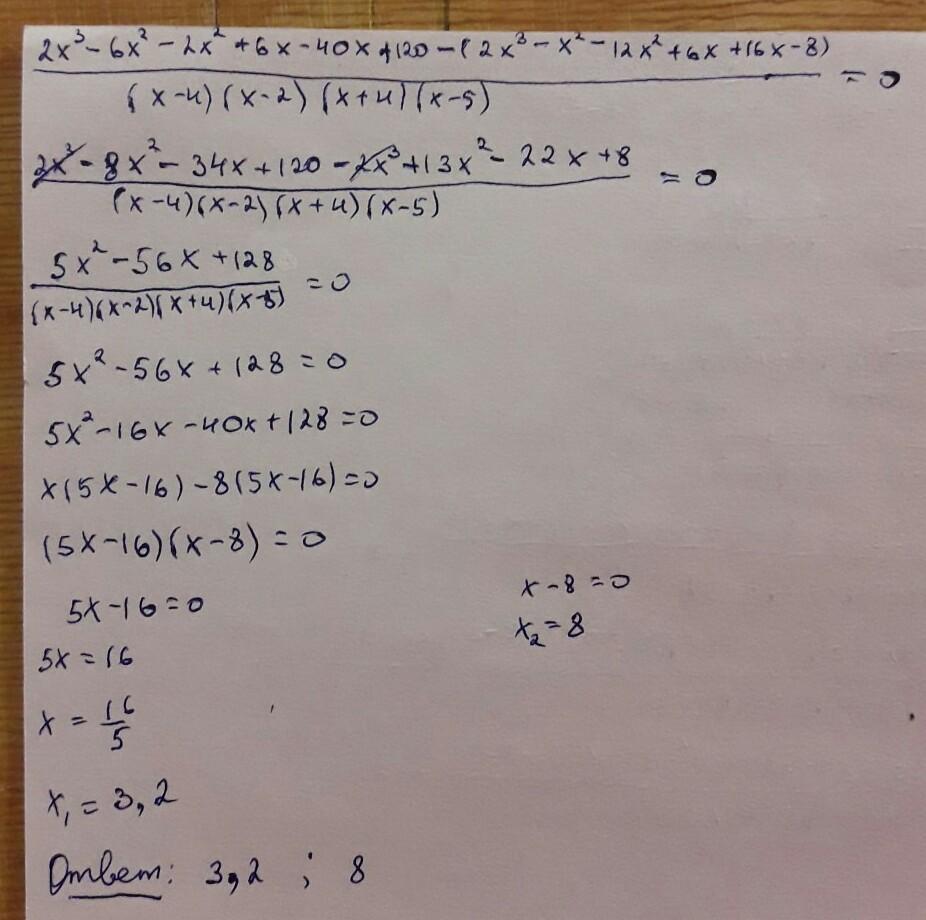 2x³ - 6x² - 2x² + 6x - 40x + 120 - (2x³ - x² - 12x² + 6x + 16x - 8)
(x-4)(x-2)(x+4)(x-5) = 0
2x³ - 8x² - 34x + 120 - 2x³ + 13x² - 22x + 8
(x-4)(x-2)(x+4)(x-5) = 0
5x² - 56x + 128
(x-4)(x-2)(x+4)(x-5) = 0
5x² - 56x + 128 = 0
5x² - 16x - 40x + 128 = 0
x(5x-16) - 8(5x-16) = 0
(5x-16)(x-8) = 0
5x - 16 = 0
5x = 16
x = 16/5
x₁ = 3,2
x - 8 = 0
x₂ = 8
Ответ: 3,2 ; 8